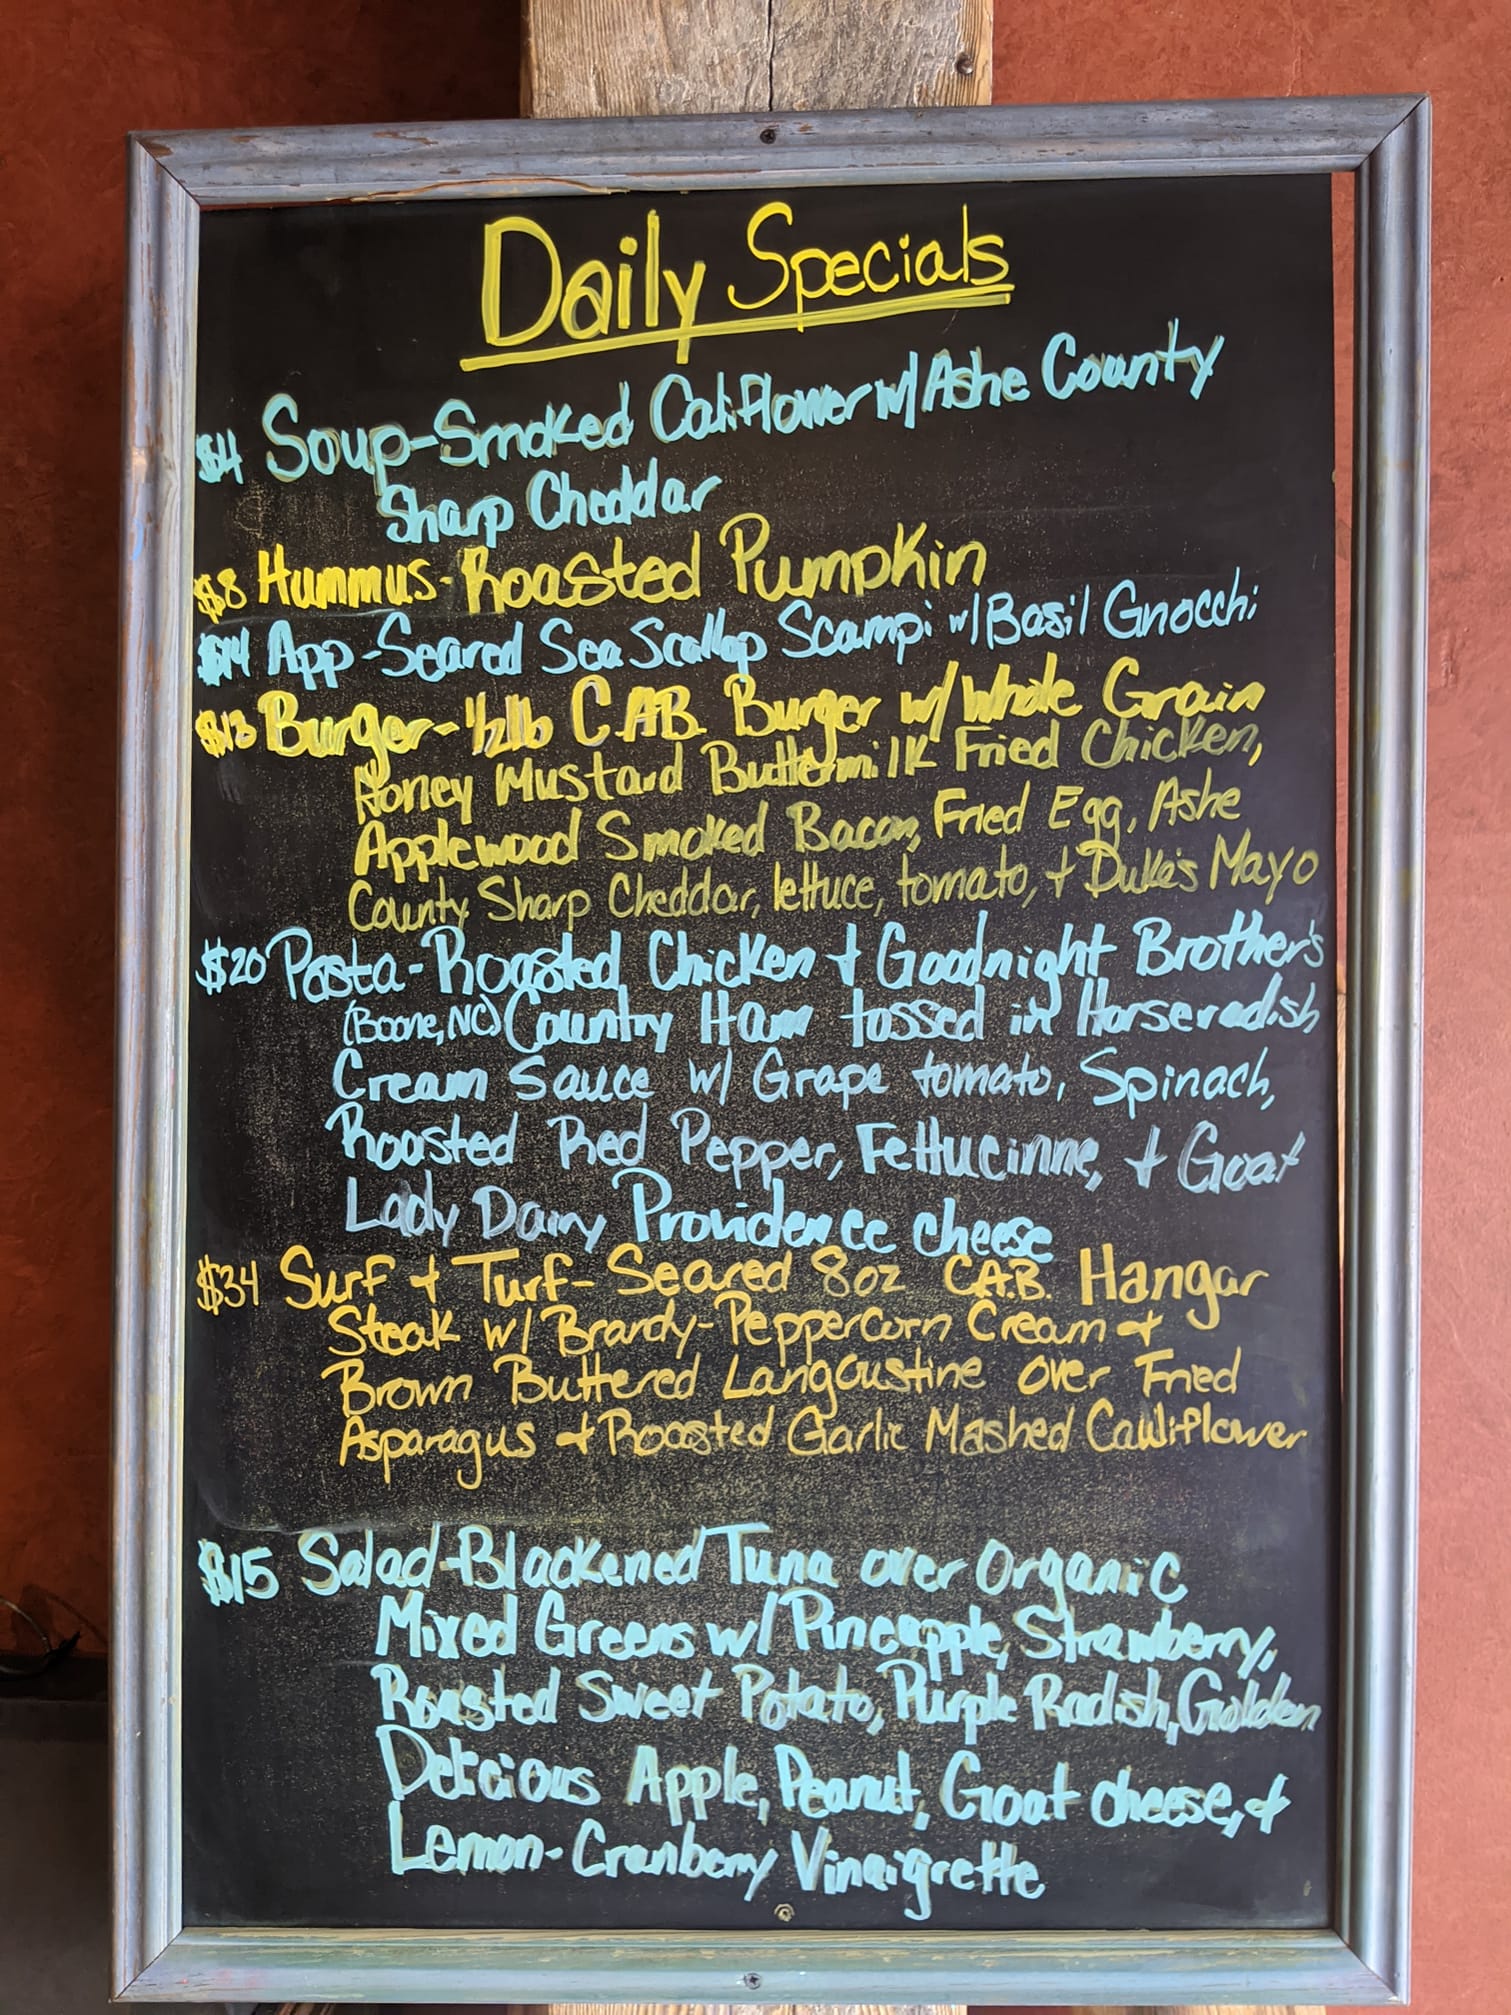 Daily Specials
$4 Soup-Smoked Califlower w/ Ashe County
Sharp Cheddar
$8 Hummus-Roasted Pumpkin
$14 App-Seared Sea Scallop Scampi w/ Basil Gnocchi
$13 Burger-1/2lb C.A.B. Burger w/ Whole Grain
Honey Mustard Buttermilk Fried Chicken,
Applewood Smoked Bacon, Fried Egg, Ashe
County Sharp Cheddar, lettuce, tomato, + Duke's Mayo
$20 Pasta-Roasted Chicken + Goodnight Brother's
(Boone, NC) Country Ham tossed in Horseradish
Cream Sauce w/ Grape tomato, Spinach,
Roasted Red Pepper, Fettucinne, + Goat
Lady Dairy Providence cheese
$34 Surf + Turf-Seared 8oz C.A.B. Hangar
Steak w/ Brandy-Peppercorn Cream +
Brown Buttered Langoustine over Fried
Asparagus + Roasted Garlic Mashed Cauliflower
$15 Salad-Blackened Tuna over Organic
Mixed Greens w/ Pineapple, Strawberry,
Roasted Sweet Potato, Purple Radish, Golden
Delicious Apple, Peanut, Goat cheese, +
Lemon-Cranberry Vinaigrette